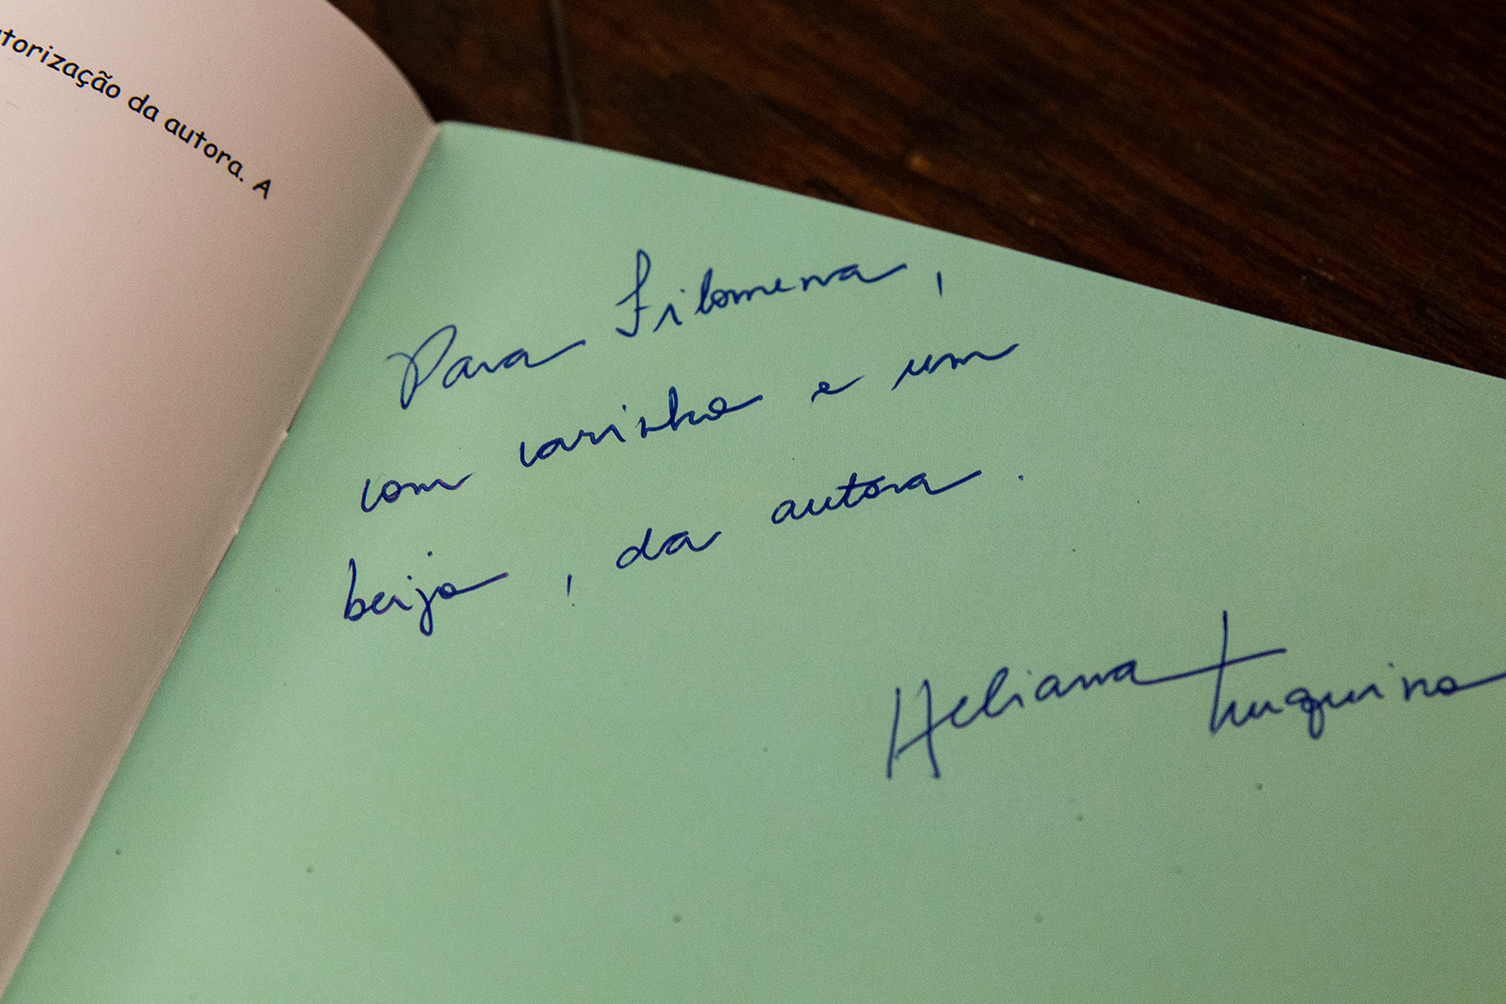 torização da autora. A
Para Filomena,
com carinho e um
beijo, da autora.
Heliana